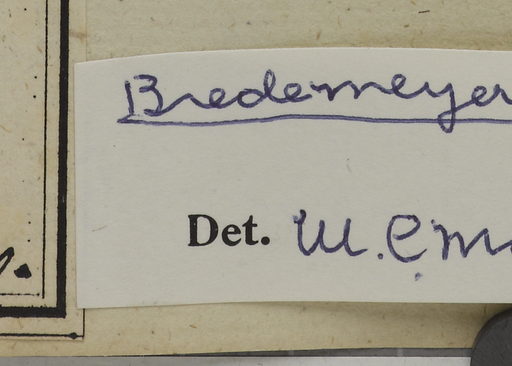 Bredemeyer
Det. W. E. m